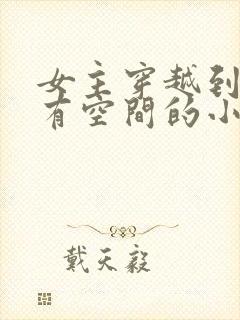 女主穿越到
有空間的小
戴天毅